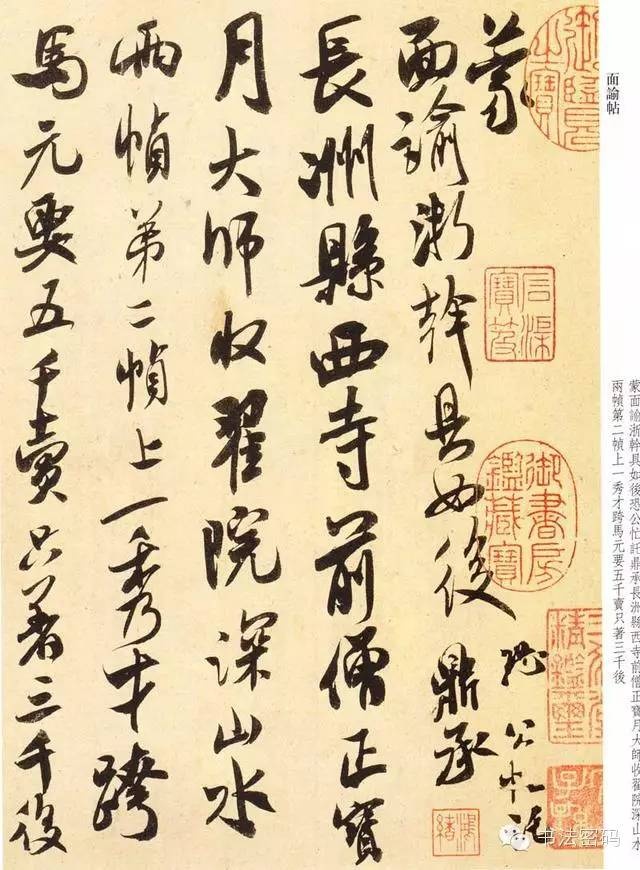 面諭帖
蒙面諭浙幹具如後恐公忙託鼎承長洲縣西寺前僧正寶月大師收翟院深山水
兩幀第二幀上一秀才跨馬元要五千賣只著三千後
蒙
面諭浙幹具如後
恐公忙託
鼎承
長洲縣西寺前僧正寶
月大師收翟院深山水
兩幀第二幀上一秀才跨
馬元要五千賣只著三千後
御覽
之寶
石渠
寶笈
御書房
鑑藏寶
精鑑璽
书法密码